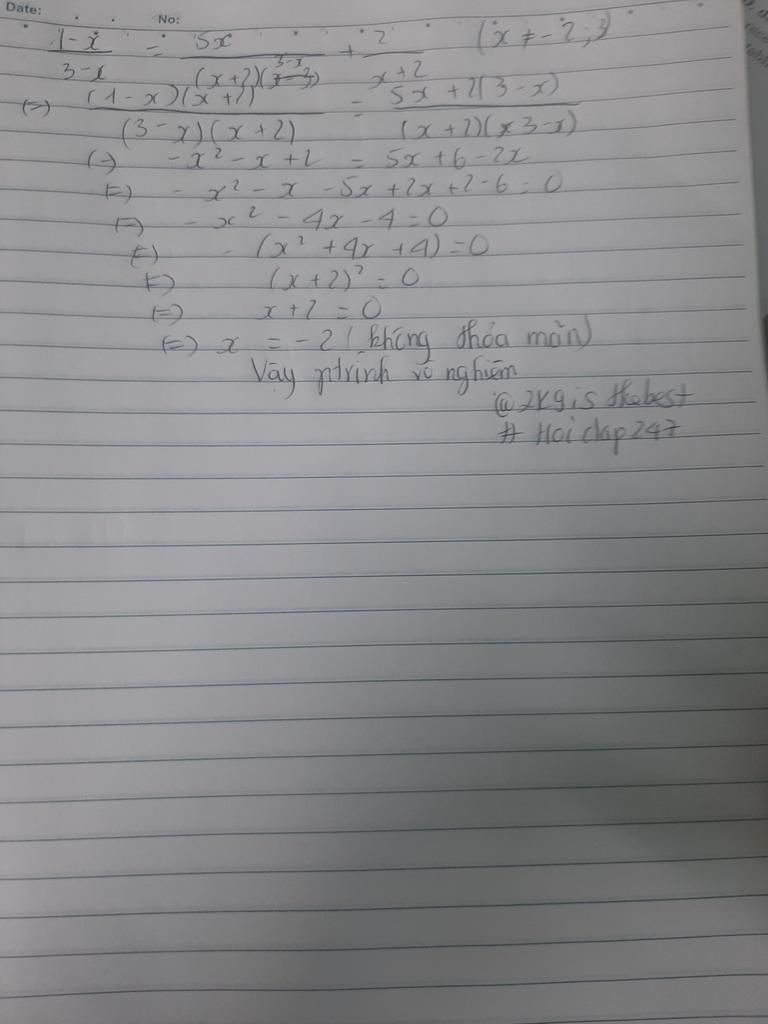 Date: No:
(1-x)/(3-x) = 5x/((x+2)(3-x)) + 2/(x+2) (x ≠ -2; 3)
(=) ((1-x)(x+2))/((3-x)(x+2)) = (5x+2(3-x))/((x+2)(3-x))
(=) -x² - x + 2 = 5x + 6 - 2x
(=) - x² - x - 5x + 2x + 2 - 6 = 0
(=) - x² - 4x - 4 = 0
(=) - (x² + 4x + 4) = 0
(=) (x + 2)² = 0
(=) x + 2 = 0
(=) x = -2 (không thỏa mãn)
Vậy ptrình vô nghiệm
@2K9is thebest
# Hoidap247